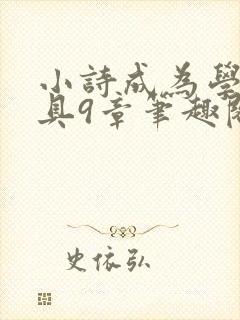 小詩成為學
具9章筆趣閱
史依弘